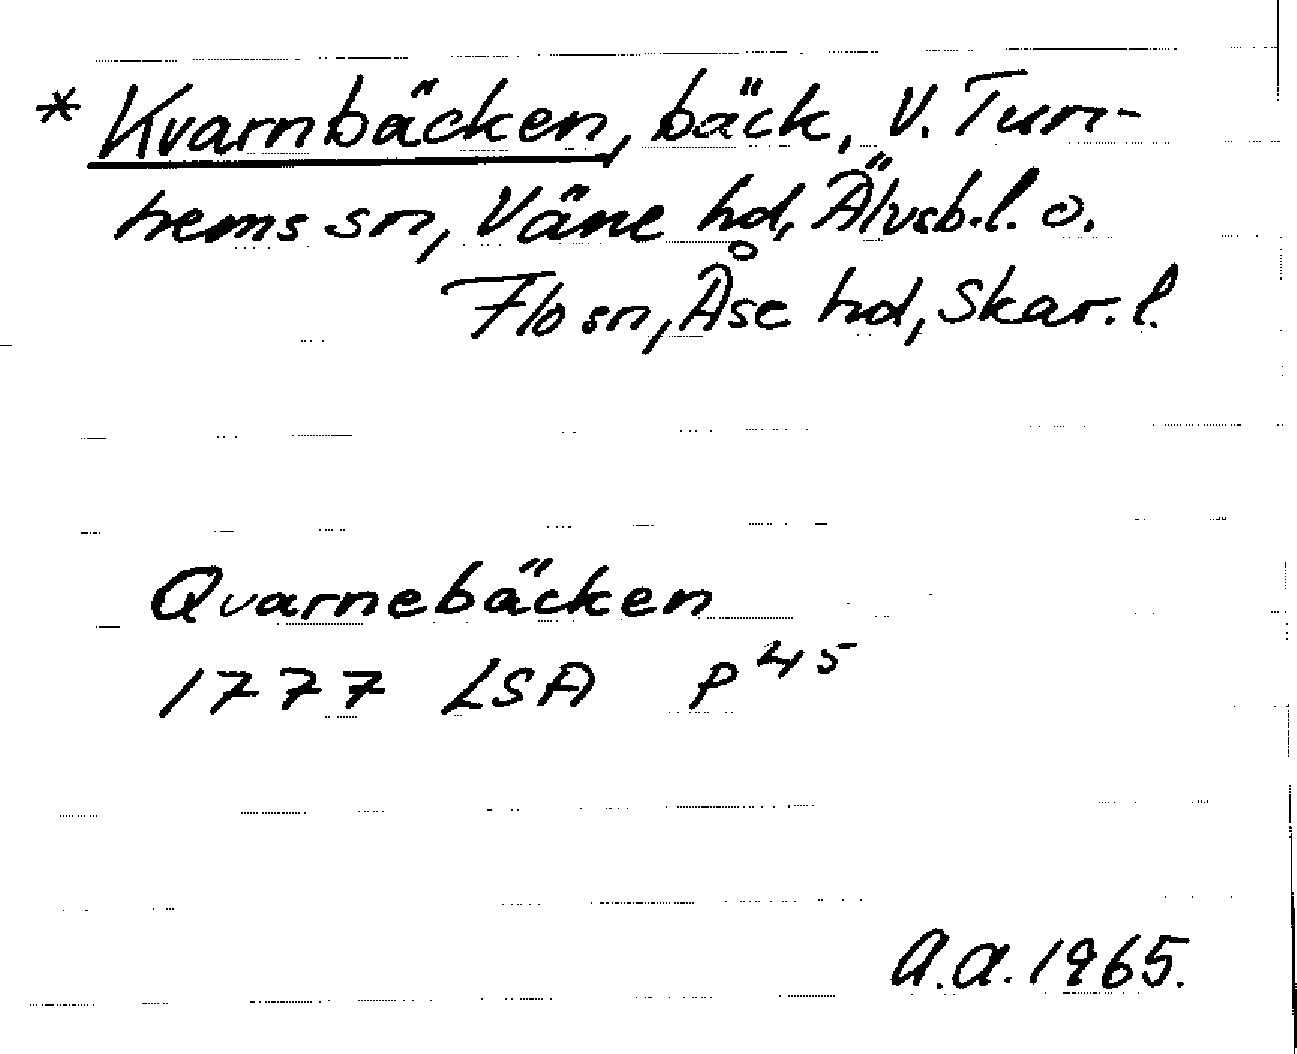 * Kvarnbäcken, bäck, V. Tun-
hems sn, Väne hd, Älvsb. l. o.
Flo sn, Åse hd, Skar. l.
Qvarnebäcken
1777 LSA P 45
A.A. 1965.